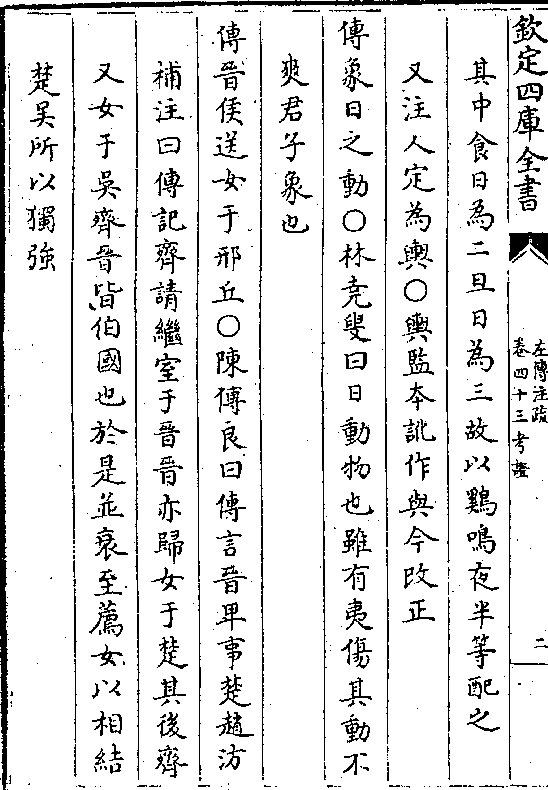 欽定四庫全書
左傳注疏
卷四十三考證
二
其中食日為二旦日為三故以鷄鳴夜半等配之
又注人定為輿○輿監本訛作與今改正
傳象日之動○林堯叟曰日動物也雖有夷傷其動不
爽君子象也
傳晉侯送女于邢丘○陳傅良曰傳言晉卑事楚趙汸
補注曰傳記齊請繼室于晉晉亦歸女于楚其後齊
又女于吳齊晉皆伯國也於是並衰至薦女以相結
楚吳所以獨強